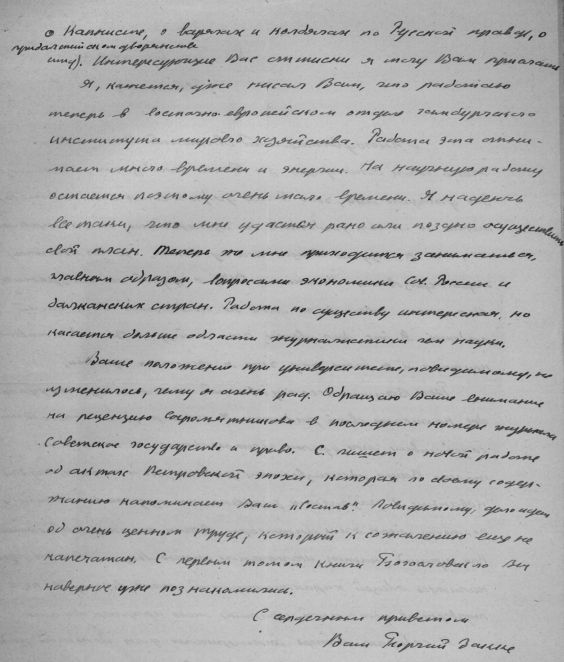 о Капнисте, о варягах и колбягах по Русской правде, о
прибалтийском дворянстве
итд). Интересующие Вас оттиски я могу Вам прислать
Я, кажется, уже писал Вам, что работаю
теперь в восточно-европейском отделе гамбургского
института мирового хозяйства. Работа эта отни-
мает много времени и энергии. На научную работу
остается поэтому очень мало времени. Я надеюсь
все таки, что мне удастся рано или поздно осуществить
свой план. Теперь же мне приходится заниматься,
главным образом, вопросами экономики Сов. России и
балканских стран. Работа по существу интересная, но
касается больше области журналистики чем науки.
Ваше положение при университете, повидимому, не
изменилось, чему я очень рад. Обращаю Ваше внимание
на рецензию Сыромятникова в последнем номере журнала
Советское государство и право. С. пишет о новой работе
об актах Петровской эпохи, которая по своему содер-
жанию напоминает Ваш "Состав". Повидимому, дело идет
об очень ценном труде, который к сожалению еще не
напечатан. С первым томом книги Богословского Вы
наверное уже познакомились.
С сердечным приветом
Ваш Георгий